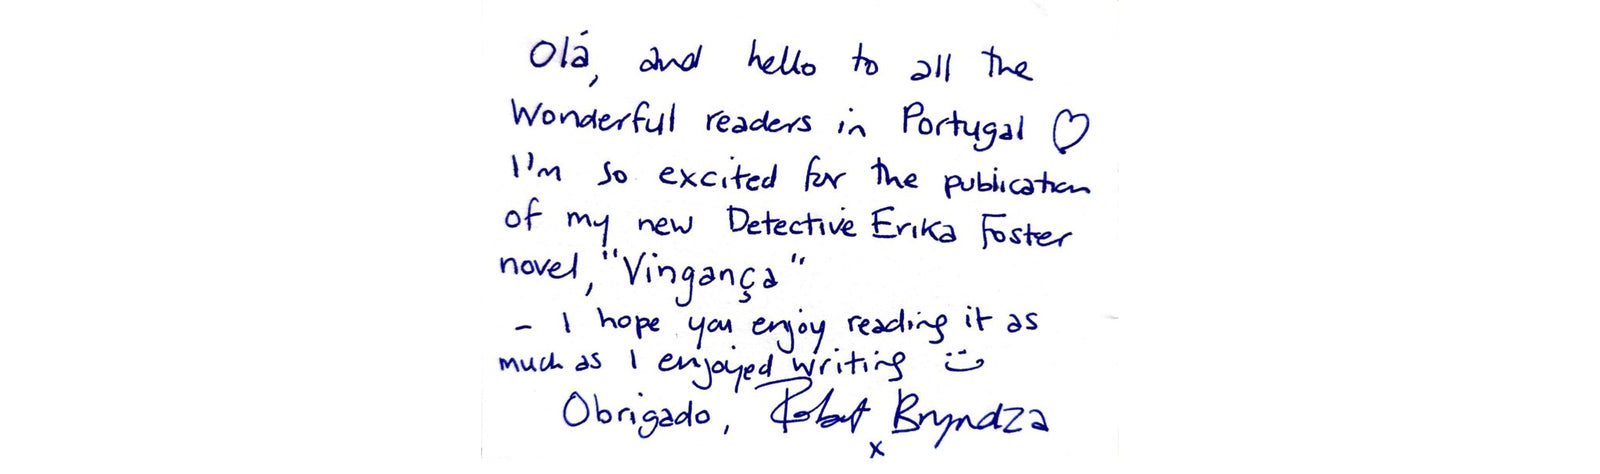 Olá, and hello to all the
Wonderful readers in Portugal ♡
I'm so excited for the publication
of my new Detective Erika Foster
novel, "Vingança"
- I hope you enjoy reading it as
much as I enjoyed writing :)
Obrigado, Robert Bryndza
x